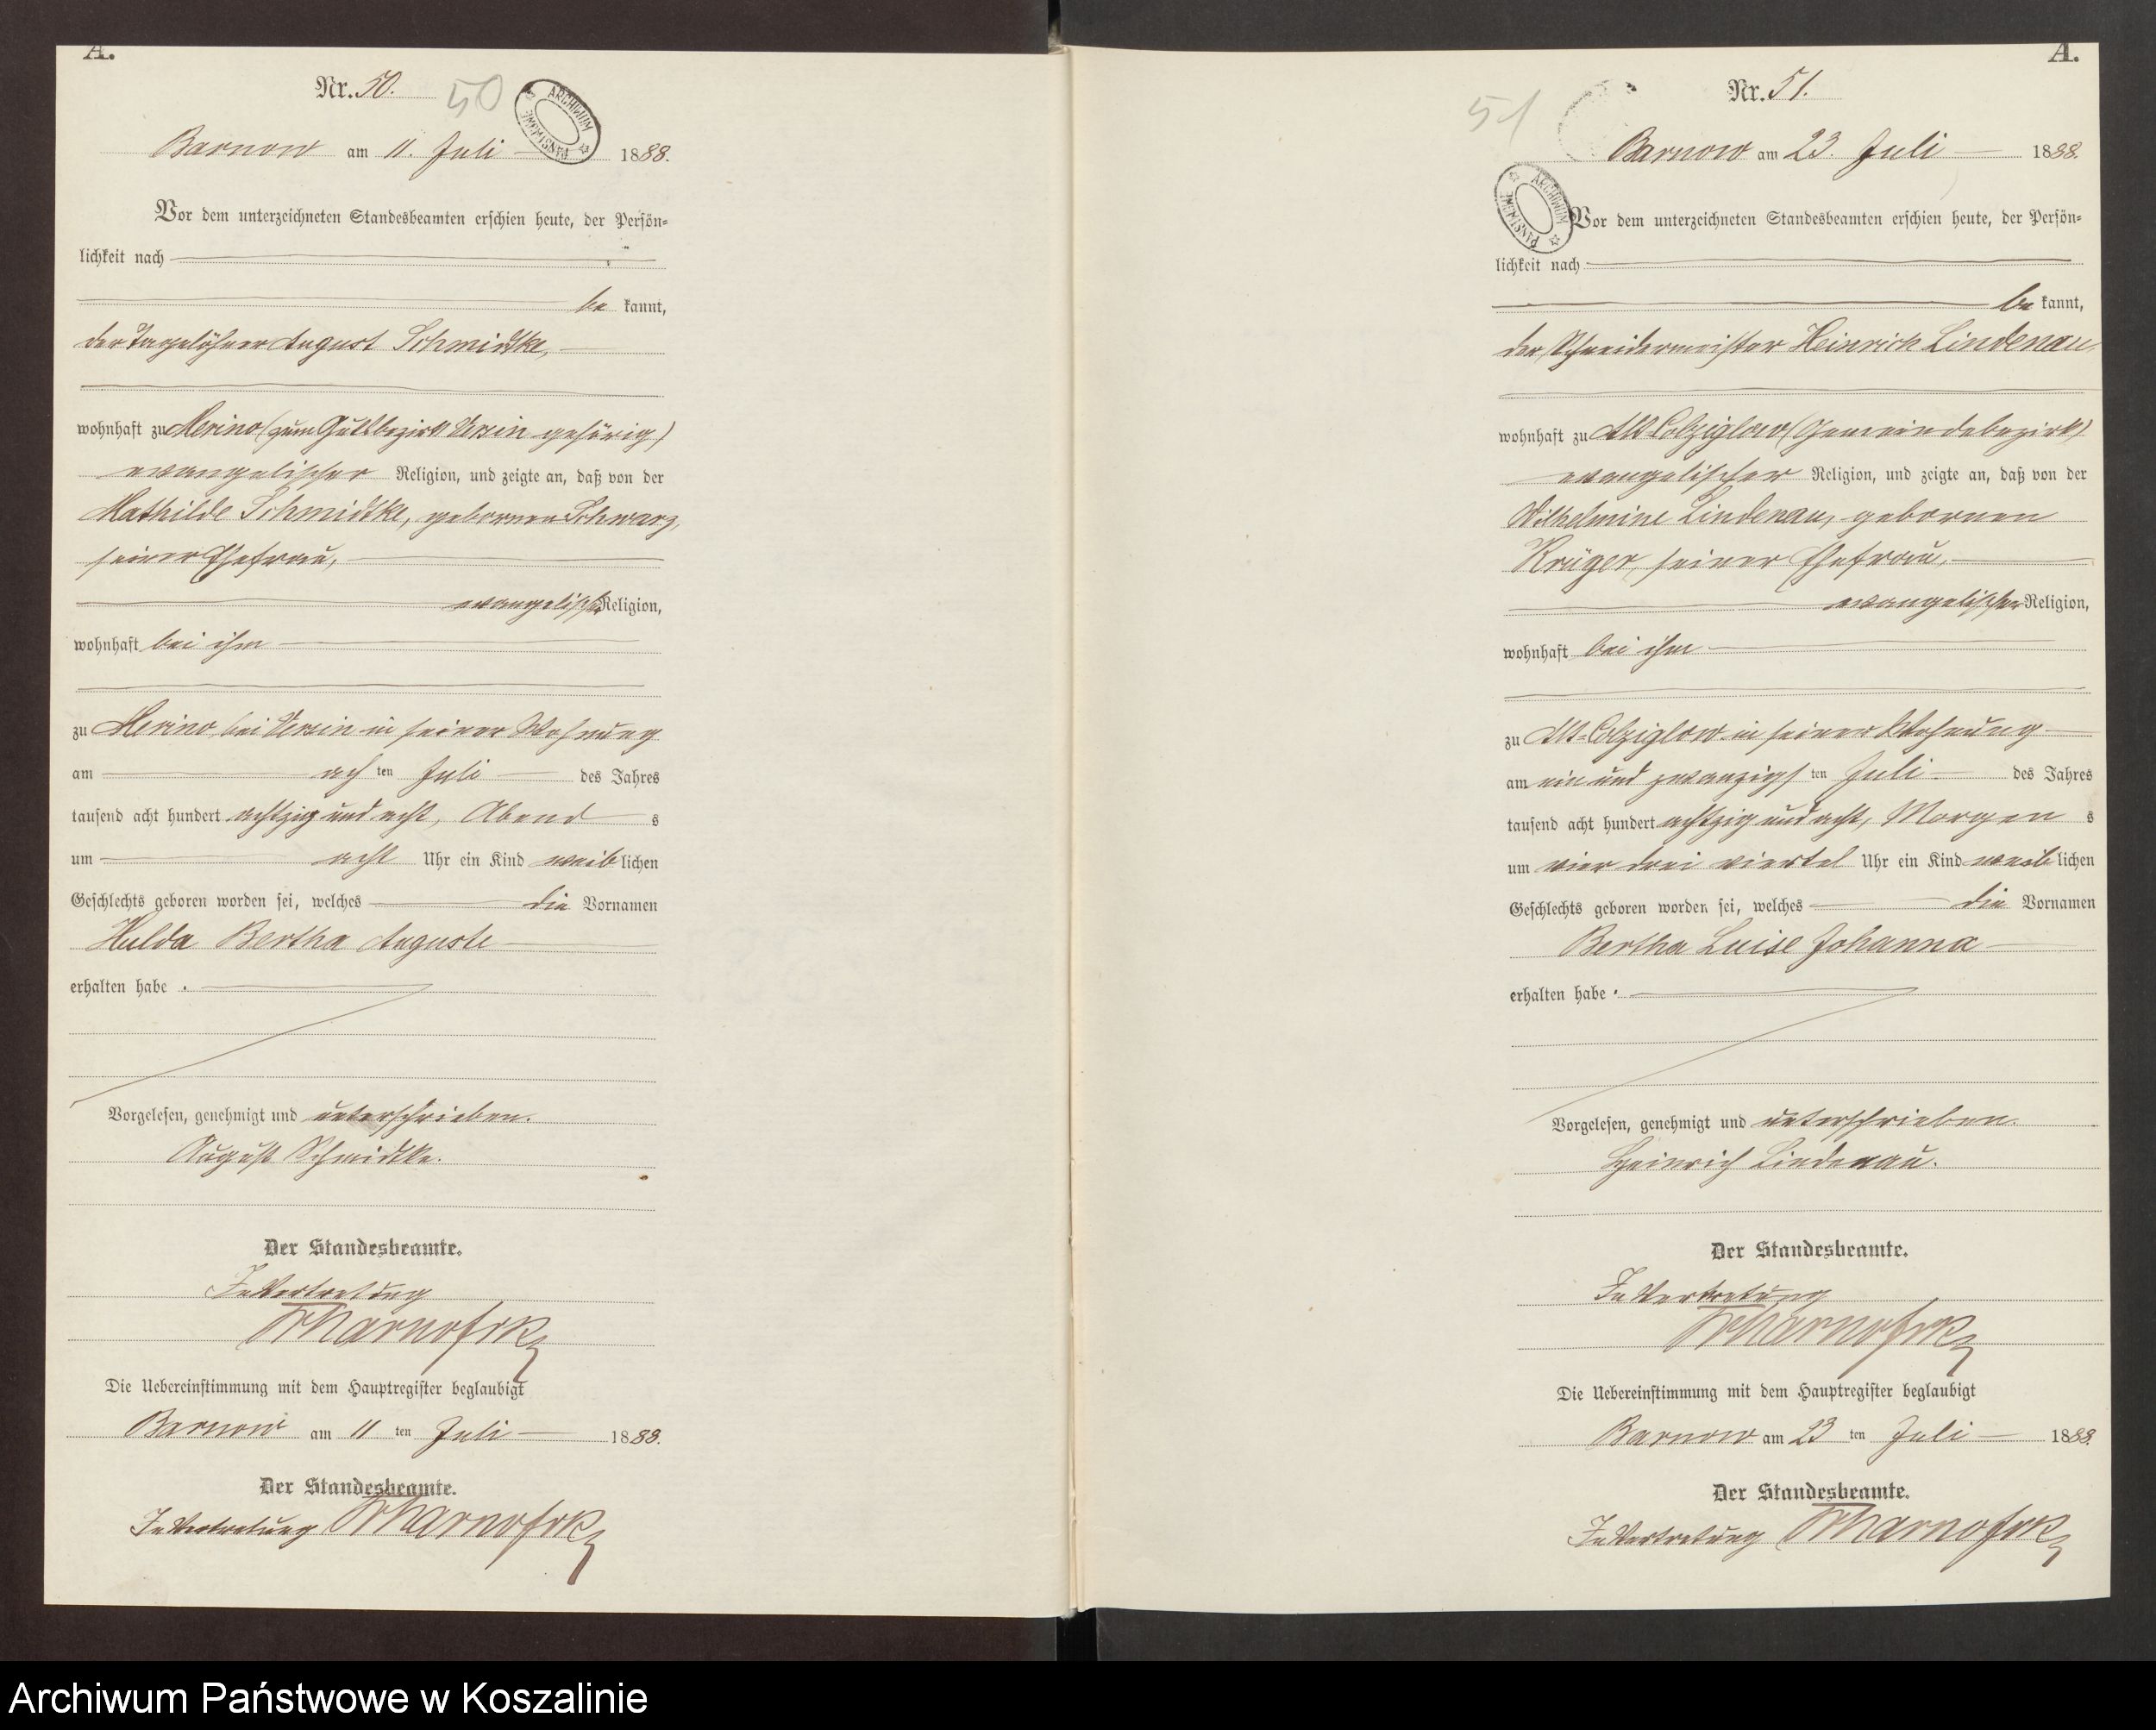 A.
Nr. 50.
50
ARCHIWUM PAŃSTWOWE
Barnow am 11. Juli 1888.
Vor dem unterzeichneten Standesbeamten erschien heute, der Persön=
lichkeit nach
be kannt,
der Tagelöhner August Schmidtke,
wohnhaft zu Merino (zum Gutsbezirk Versin gehörig)
evangelischer Religion, und zeigte an, daß von der
Mathilde Schmidtke, gebornen Schwarz,
seiner Ehefrau,
evangelischer Religion,
wohnhaft bei ihm
zu Merino bei Versin in seiner Wohnung
am ach ten Juli des Jahres
tausend acht hundert achtzig und acht, Abend s
um acht Uhr ein Kind weib lichen
Geschlechts geboren worden sei, welches die Vornamen
Hulda Bertha Auguste
erhalten habe.
Vorgelesen, genehmigt und unterschrieben.
August Schmidtke.
Der Standesbeamte.
In Vertretung
Die Uebereinstimmung mit dem Hauptregister beglaubigt
Barnow am 11 ten Juli 1888.
Der Standesbeamte.
In Vertretung
A.
Nr. 51.
51
Barnow am 23. Juli 1888.
ARCHIWUM PAŃSTWOWE
Vor dem unterzeichneten Standesbeamten erschien heute, der Persön=
lichkeit nach
be kannt,
der Schneidermeister Heinrich Lindenau,
wohnhaft zu Alt-Colziglow (Gemeindebezirk)
evangelischer Religion, und zeigte an, daß von der
Wilhelmine Lindenau, gebornen
Krüger, seiner Ehefrau,
evangelischer Religion,
wohnhaft bei ihm
zu Alt-Colziglow in seiner Wohnung
am ein und zwanzigs ten Juli des Jahres
tausend acht hundert achtzig und acht, Morgen s
um vier drei viertel Uhr ein Kind weib lichen
Geschlechts geboren worden sei, welches die Vornamen
Bertha Luise Johanna
erhalten habe.
Vorgelesen, genehmigt und unterschrieben.
Heinrich Lindenau.
Der Standesbeamte.
In Vertretung
Die Uebereinstimmung mit dem Hauptregister beglaubigt
Barnow am 23 ten Juli 1888.
Der Standesbeamte.
In Vertretung
Archiwum Państwowe w Koszalinie